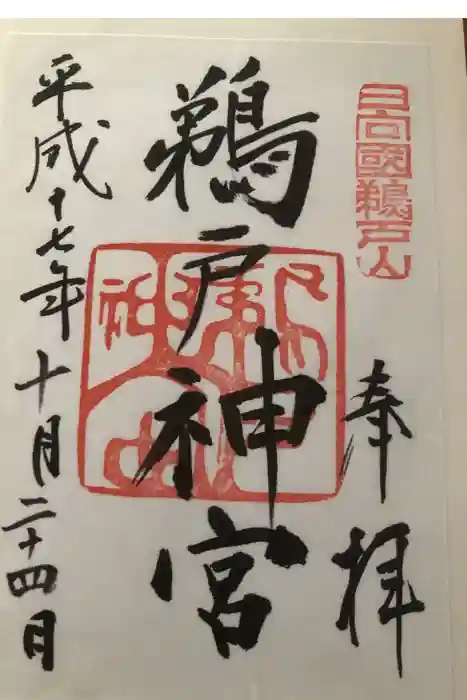 日向國鵜戸山
奉拝
鵜戸神宮
鵜戸神宮
平成十七年十月二十四日